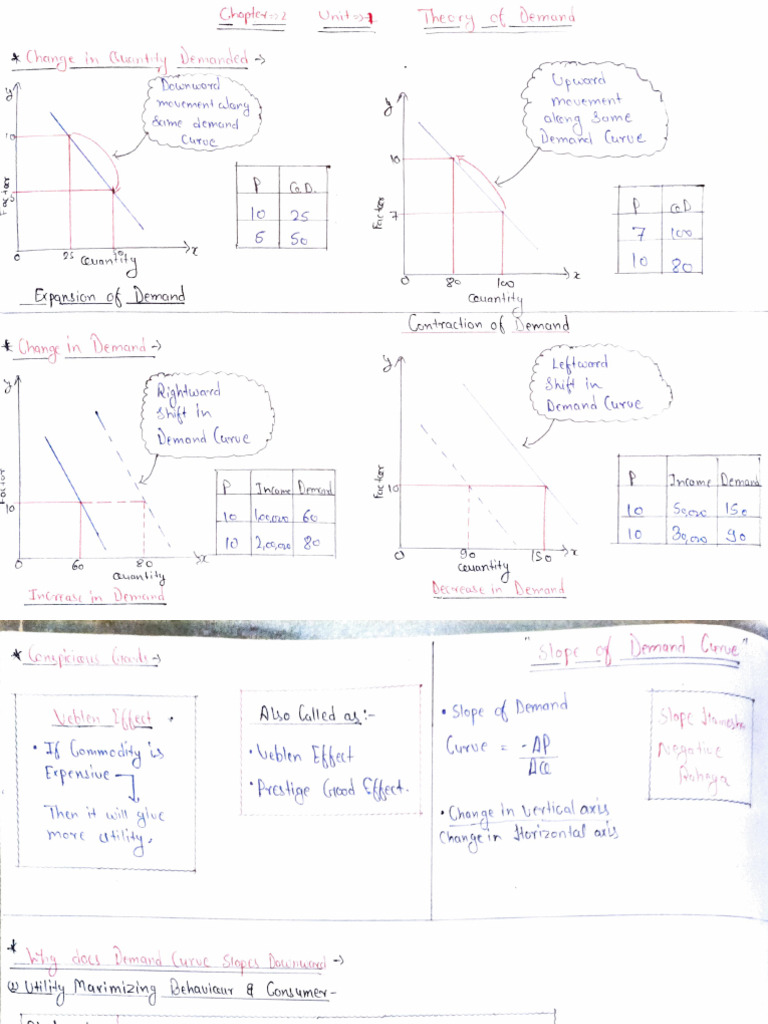 Chapter:- 2 Unit:- 1 Theory of Demand
* Change in Quantity Demanded →
y
Downward
movement along
same demand
Curve
10
5
Factor
0 25 50 x
Quantity
P Q.D.
10 25
5 50
Expansion of Demand
y
Upward
movement
along same
Demand Curve
10
7
Factor
0 80 100 x
Quantity
P Q.D
7 100
10 80
Contraction of Demand
* Change in Demand →
y
Rightward
Shift in
Demand Curve
Factor
10
0 60 80 x
Quantity
P Income Demand
10 1,00,000 60
10 2,00,000 80
Increase in Demand
y
Leftward
Shift in
Demand Curve
Factor
10
0 90 150 x
Quantity
P Income Demand
10 50,000 150
10 30,000 90
Decrease in Demand
* Conspicious Goods →
Veblen Effect
• If Commodity is
Expensive
Then it will give
more utility.
Also Called as:-
• Veblen Effect
• Prestige Good Effect.
"Slope of Demand Curve"
• Slope of Demand
Curve = -ΔP
ΔQ
• Change in vertical axis
Change in Horizontal axis
Slope Hamesha
Negative
Rahega
* Why does Demand Curve Slopes Downward →
① Utility Maximizing Behaviour & Consumer-